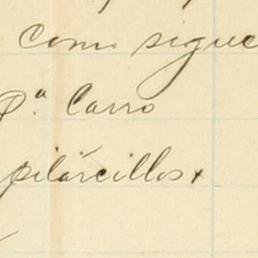 como sigue
Pª Carro
pilarcillos,